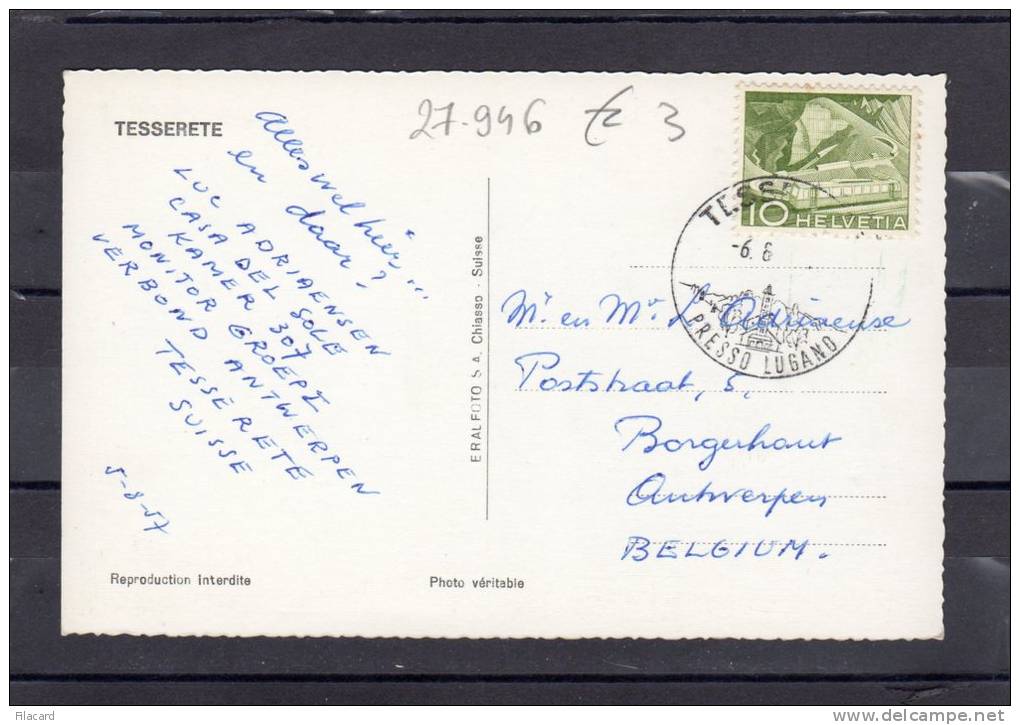 TESSERETE
27.946 € 3
Alles wel hier...
en daar?
LUC ADRIAENSEN
CASA DEL SOLE
KAMER 307
MONITOR GROEP I
VERBOND ANTWERPEN
TESSERETE
SUISSE
5-8-57
Reproduction interdite
Photo véritable
ERALFOTO S.A. Chiasso - Suisse
10 HELVETIA
TESSE
-6. 8
PRESSO LUGANO
Mr en Mv L. Adriaense
Poststraat, 5,
Borgerhout
Antwerpen
BELGIUM.
Filacard
www.delcampe.net